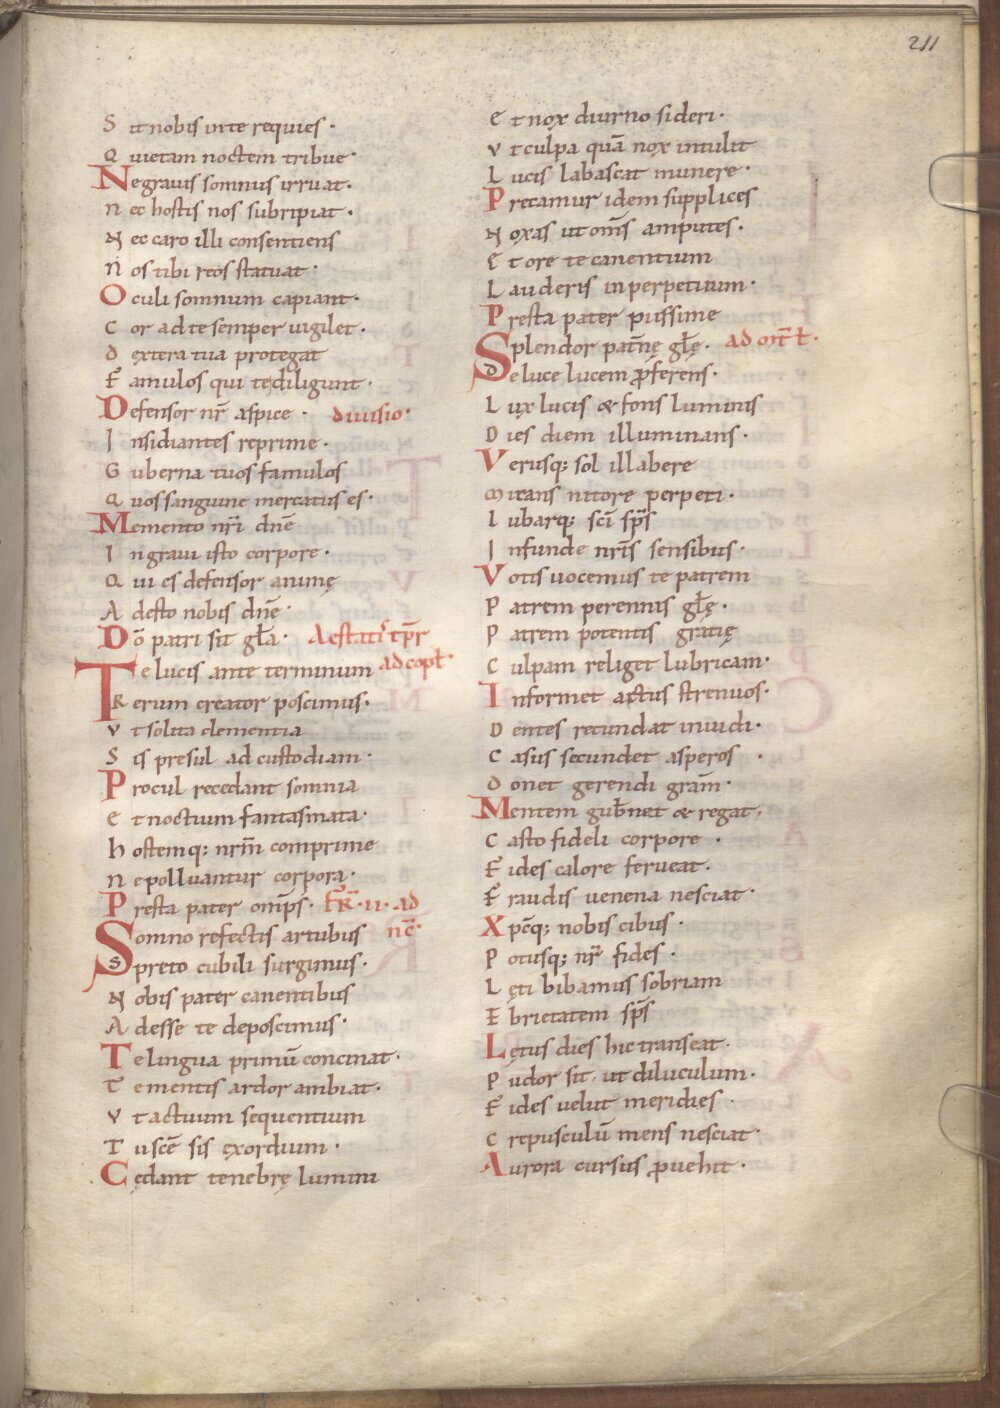 211
Sit nobis in te requies·
Quietam noctem tribue·
Ne grauis somnus irruat·
nec hostis nos subripiat·
Nec caro illi consentiens
nos tibi reos statuat·
Oculi somnum capiant·
Cor ad te semper uigilet·
dextera tua protegat
Famulos qui te diligunt·
Defensor nr̄ aspice· diuisio·
Insidiantes reprime·
Guberna tuos famulos
Quos sanguine mercatus es·
Memento nr̄i dn̄e
In graui isto corpore·
Qui es defensor animę
Adesto nobis dn̄e·
Dō patri sit gła· Aestatis tp̄r
Te lucis ante terminum ad copł·
Rerum creator poscimus·
Vt solita clementia
Sis presul ad custodiam·
Procul recedant somnia
et noctium fantasmata·
hostemq; nrm̄ comprime
ne polluantur corpora·
Presta pater omp̄s· FR̄·II·ad
Somno refectis artubus nc̄·
Spreto cubili surgimus·
Nobis pater canentibus
Adesse te deposcimus·
Te lingua primū concinat·
Te mentis ardor ambiat·
Vt actuum sequentium
Tu sc̄e sis exordium·
Cędant tenebrę lumini
et nox diurno sideri·
Vt culpa quā nox intulit
Lucis labascat munere·
Precamur idem supplices
Noxas ut om̄s amputes·
Et ore te canentium
Lauderis in perpetuum·
Presta pater piissime
Splendor pat̄nę głę· ad mat̄ ł·
De luce lucem ꝓferens·
Lux lucis & fons luminis
Dies diem illuminans·
Verusq; sol illabere
micans nitore perpeti·
Iubarq; sc̄i sp̄s
Infunde nr̄is sensibus·
Votis uocemus te patrem
Patrem perennis głę·
Patrem potentis gratię
Culpam religet lubricam·
Informet actus strenuos·
Dentes retundat inuidi·
Casus secundet asperos·
donet gerendi gram̄·
Mentem gub̄net & regat·
Casto fideli corpore·
Fides calore ferueat·
Fraudis uenena nesciat·
Xpc̄q; nobis cibus·
Potusq; nr̄ fides·
Lęti bibamus sobriam
Ebrietatem sp̄s
Lętus dies hic transeat·
Pudor sit ut diluculum·
Fides uelut meridies·
Crepusculū mens nesciat·
Aurora cursus ꝓuehit·